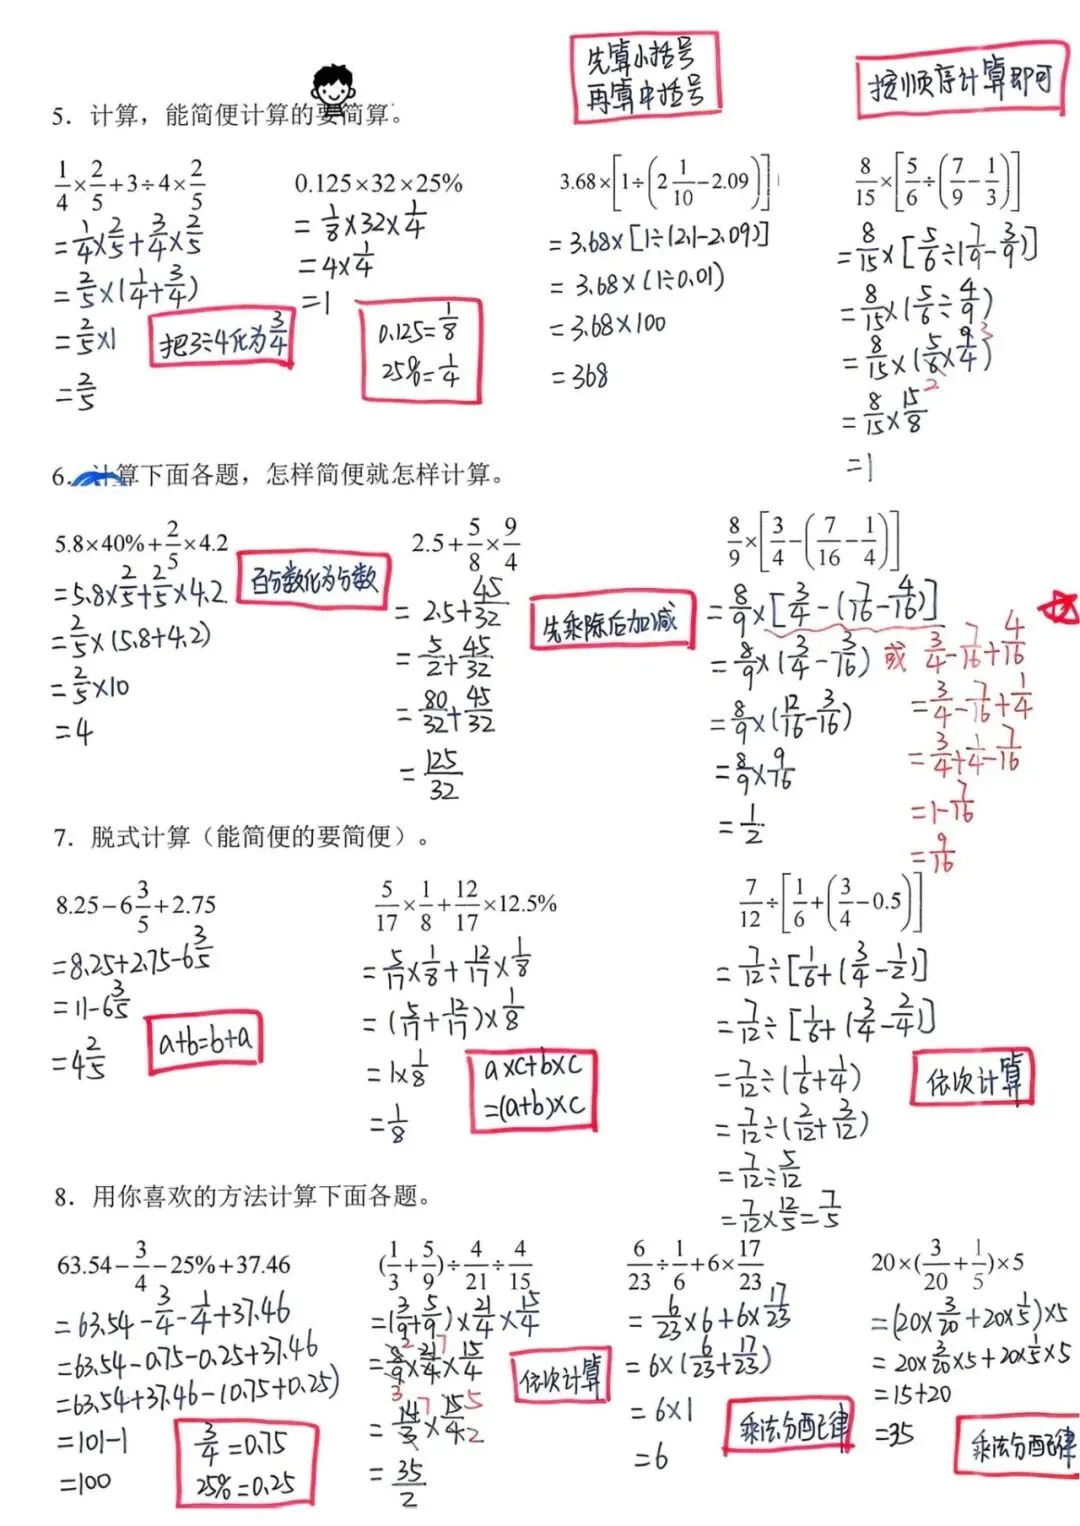 先算小括号
再算中括号
按顺序计算即可
5. 计算，能简便计算的要简算。
1/4×2/5+3÷4×2/5
=1/4×2/5+3/4×2/5
=2/5×(1/4+3/4)
=2/5×1
=2/5
把3÷4化为3/4
0.125×32×25%
=1/8×32×1/4
=4×1/4
=1
0.125=1/8
25%=1/4
3.68×[1÷(2 1/10-2.09)]
=3.68×[1÷(2.1-2.09)]
=3.68×(1÷0.01)
=3.68×100
=368
8/15×[5/6÷(7/9-1/3)]
=8/15×[5/6÷(7/9-3/9)]
=8/15×(5/6÷4/9)
=8/15×(5/6×9/4) 3 2
=8/15×15/8
=1
6. 计算下面各题，怎样简便就怎样计算。
5.8×40%+2/5×4.2
=5.8×2/5+2/5×4.2
=2/5×(5.8+4.2)
=2/5×10
=4
百分数化为分数
2.5+5/8×9/4
=2.5+45/32
=5/2+45/32
=80/32+45/32
=125/32
先乘除后加减
8/9×[3/4-(7/16-1/4)]
=8/9×[3/4-(7/16-4/16)]
=8/9×(3/4-3/16)
=8/9×(12/16-3/16)
=8/9×9/16
=1/2
或 3/4-7/16+4/16
=3/4-7/16+1/4
=3/4+1/4-7/16
=1-7/16
=9/16
7. 脱式计算（能简便的要简便）。
8.25-6 3/5+2.75
=8.25+2.75-6 3/5
=11-6 3/5
=4 2/5
a+b=b+a
5/17×1/8+12/17×12.5%
=5/17×1/8+12/17×1/8
=(5/17+12/17)×1/8
=1×1/8
=1/8
a×c+b×c
=(a+b)×c
7/12÷[1/6+(3/4-0.5)]
=7/12÷[1/6+(3/4-1/2)]
=7/12÷[1/6+(3/4-2/4)]
=7/12÷(1/6+1/4)
=7/12÷(2/12+3/12)
=7/12÷5/12
=7/12×12/5=7/5
依次计算
8. 用你喜欢的方法计算下面各题。
63.54-3/4-25%+37.46
=63.54-3/4-1/4+37.46
=63.54-0.75-0.25+37.46
=63.54+37.46-(0.75+0.25)
=101-1
=100
3/4=0.75
25%=0.25
(1/3+5/9)÷4/21÷4/15
=(3/9+5/9)×21/4×15/4
=8/9×21/4×15/4 2 7 3
=14/3×15/4 7 5 2
=35/2
依次计算
6/23÷1/6+6×17/23
=6/23×6+6×17/23
=6×(6/23+17/23)
=6×1
=6
乘法分配律
20×(3/20+1/5)×5
=(20×3/20+20×1/5)×5
=20×3/20×5+20×1/5×5
=15+20
=35
乘法分配律